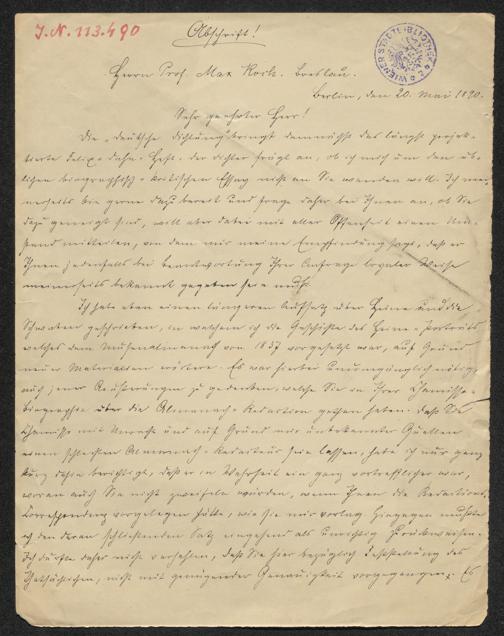 I.N. 113.490
Abschrift!
WIENER STADTBIBLIOTHEK
Herrn Prof. Max Koch. Breslau.
Berlin, den 20. Mai 1890.
Sehr geehrter Herr!
Die „Deutsche Dichtung“ bringt demnächst das längst projek-
tierte Felix-Dahn-Heft. Der Dichter frägt an, ob ich mich um den üb-
lichen biographisch-kritischen Essay nicht an Sie wenden will. Ich mei-
nerseits bin gerne dazu bereit und frage daher bei Ihnen an, ob Sie
dazu geneigt sind, will aber dabei mit aller Offenheit einen Um-
stand mitteilen, von dem mir meine Empfindung sagt, daß er
Ihnen jedenfalls bei Beantwortung Ihrer Anfrage loyaler Weise
meinerseits bekannt gegeben sein muß.
Ich habe eben einen längeren Aufsatz über Heine und die
Schwaben geschrieben, in welchem ich die Geschichte des Heine-Porträts
welches dem Musenalmanach von 1837 vorgesetzt war, auf Grund
neuen Materiales erörtere. Es war hierbei unumgänglich nötig
auch jener Äußerungen zu gedenken, welche Sie in Ihrer Chamisso-
biographie über die Almanach-Redaction gethan haben. Daß Sie
Chamisso mit Unrecht und auf Grund mir unbekannter Quellen
einen schlechten Almanach-Redakteur sein lassen, habe ich nur ganz
kurz dahin berichtigt, daß er in Wahrheit ein ganz vortrefflicher war,
woran auch Sie nicht zweifeln würden, wenn Ihnen die Redactions-
Correspondenz vorgelegen hätte, wie sie mir vorlag. Hingegen mußte
ich den daran schließenden Satz eingehend als unrichtig zurückweisen.
Ich durfte daher nicht verhehlen, daß Sie hier bezüglich Feststellung des
Thatsächlichen, nicht mit genügender Genauigkeit vorgegangen. Es